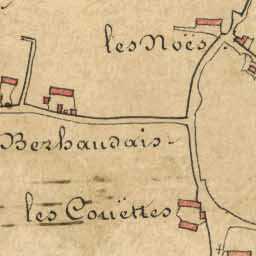 les Noës
Berhaudais -
les Couëttes